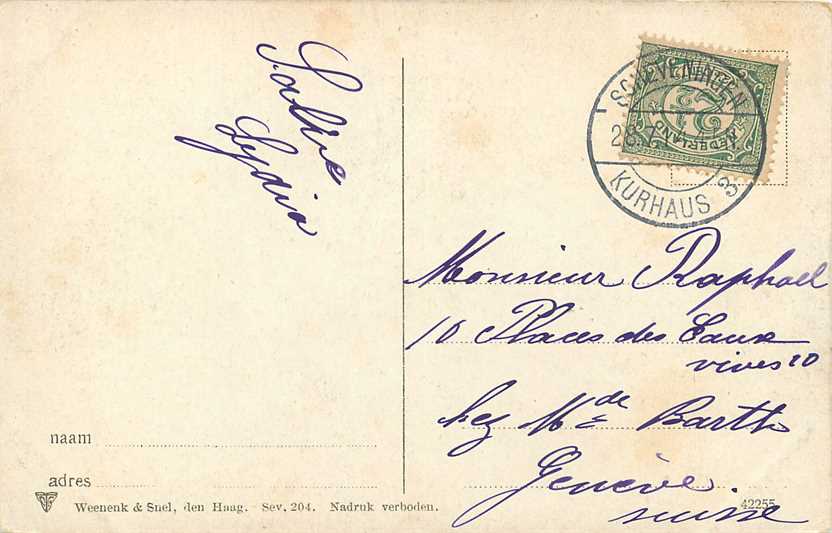 Salve
Lydia
SCHEVENINGEN
KURHAUS 3
NEDERLAND
2½
Monsieur Raphael
10 Places des Eaux
vives 10
chez Mde Barth
Genève
suisse
naam
adres
Weenenk & Snel, den Haag. Sev. 204. Nadruk verboden.
42255